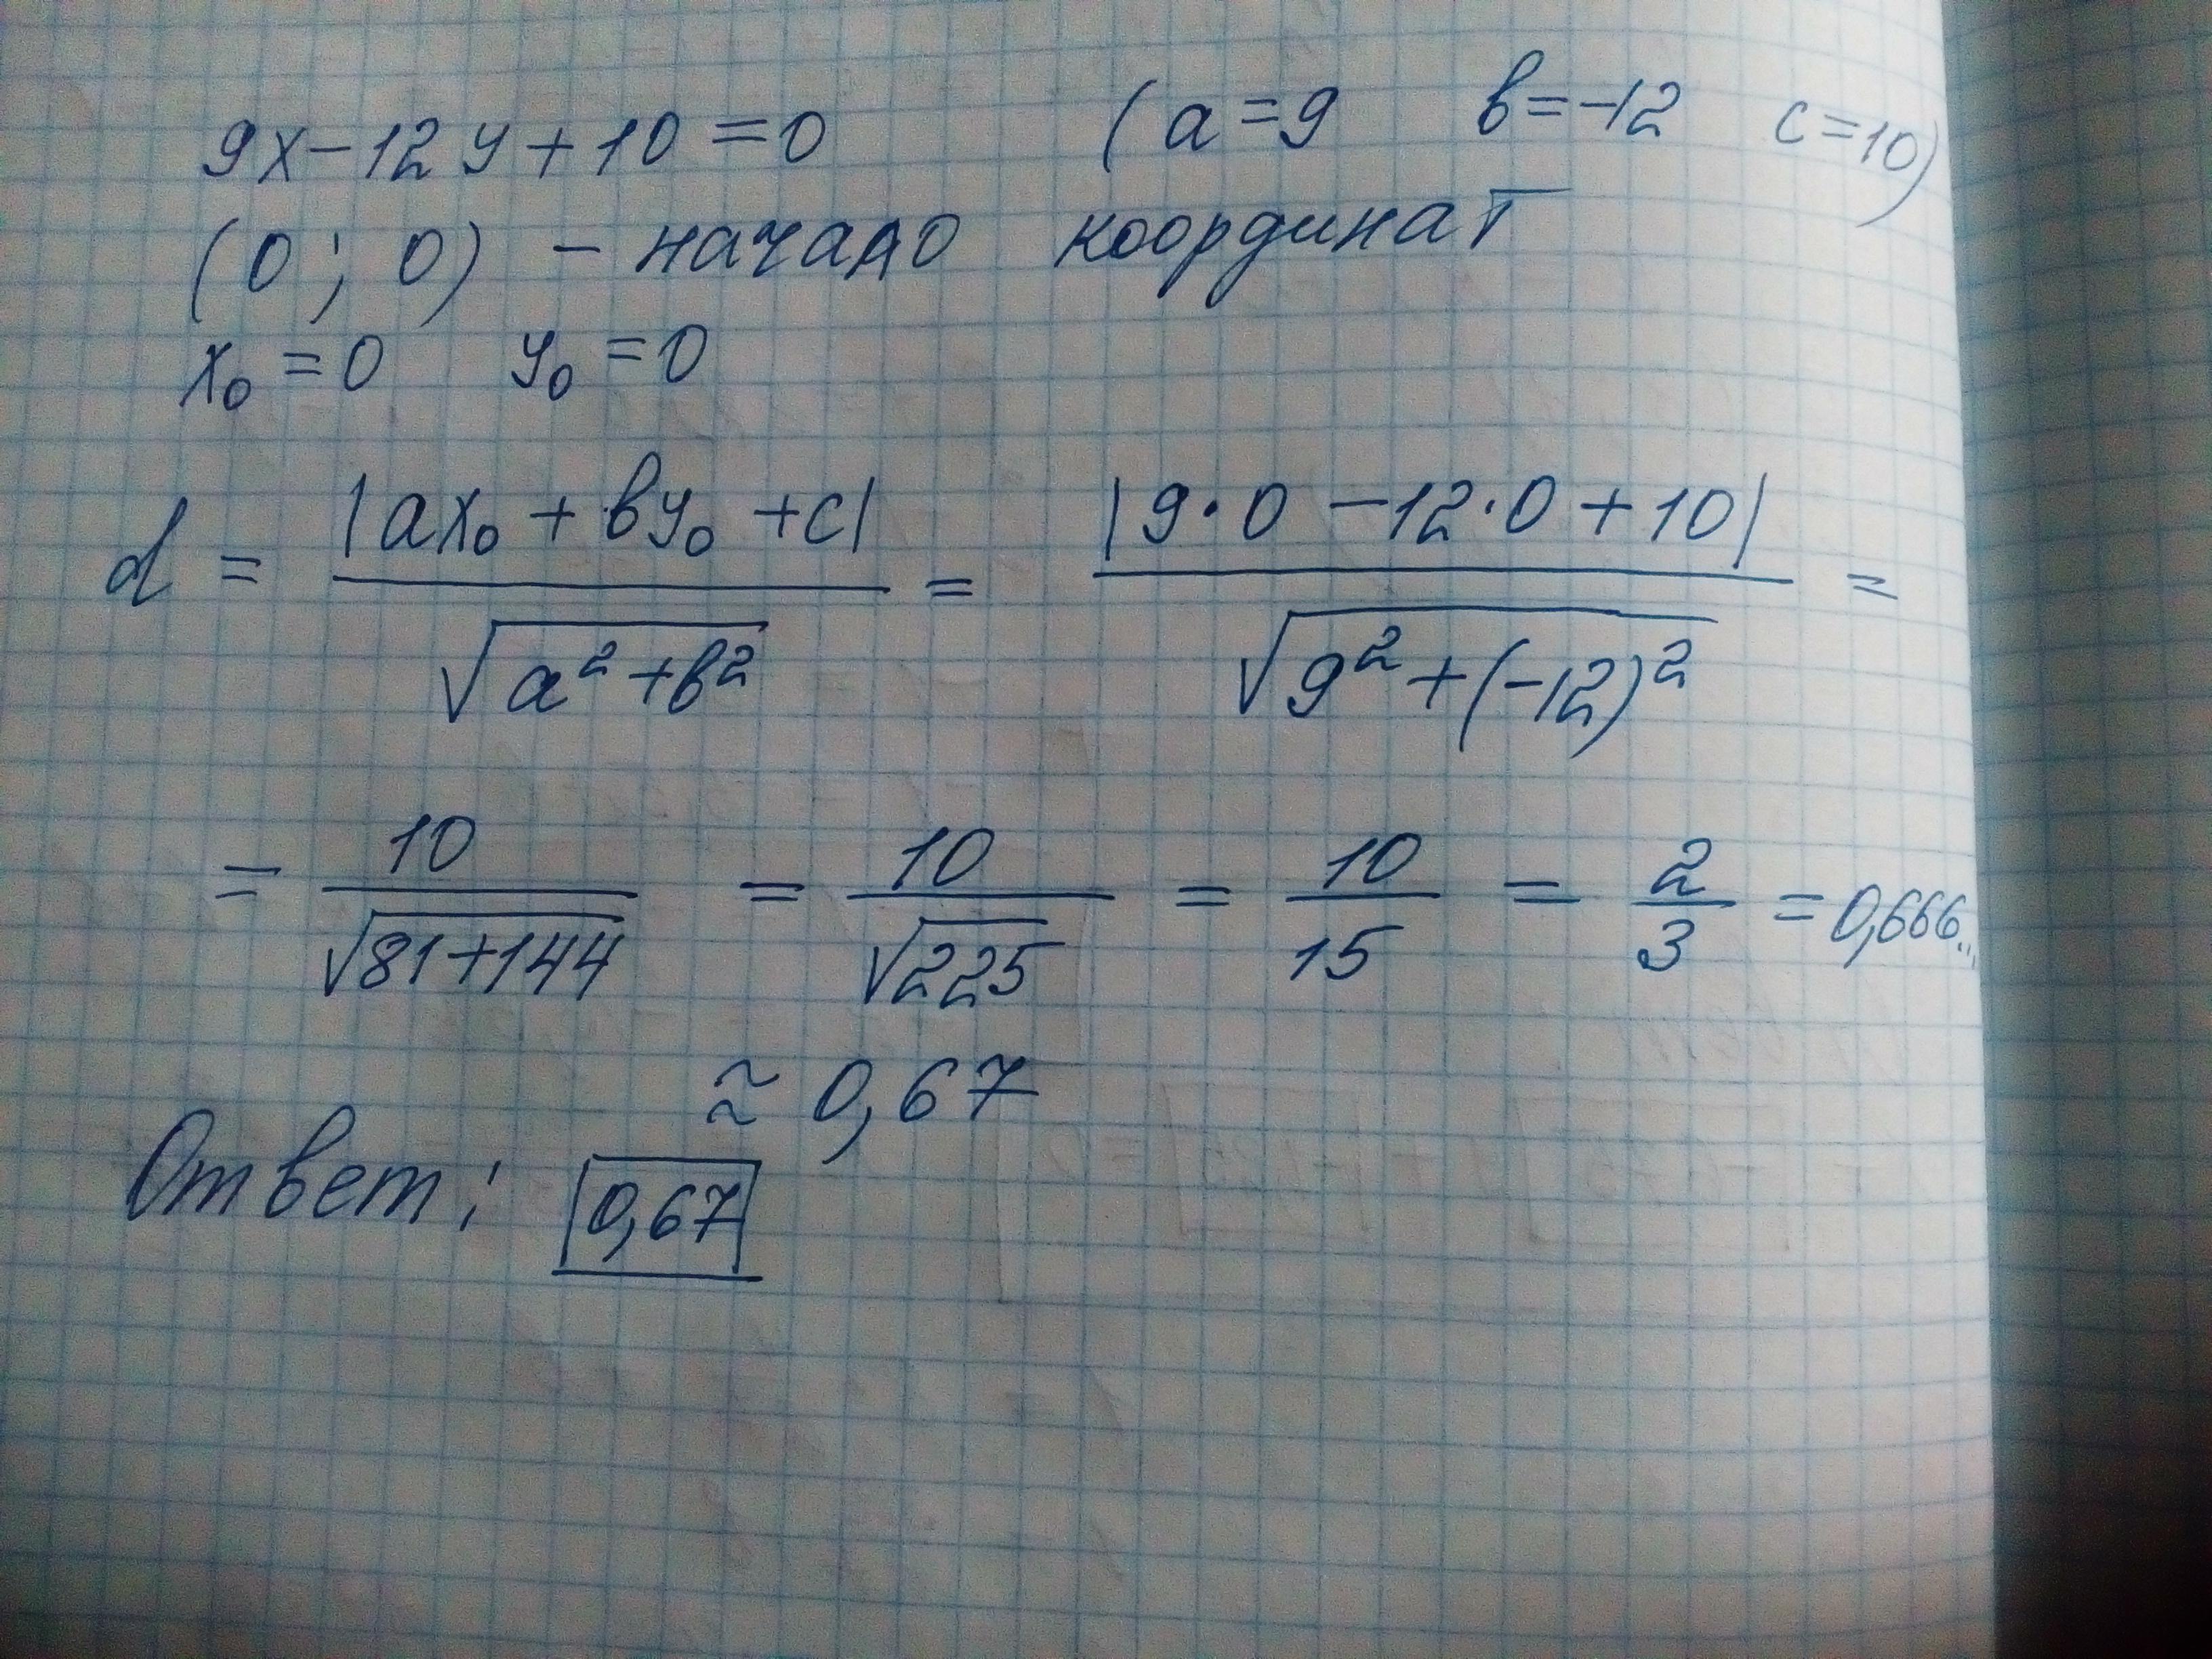 9x-12y+10=0 (a=9 в=-12 c=10)
(0; 0) - начало координат
x₀=0 y₀=0
d = |ax₀+вy₀+c| / √(a²+в²) = |9·0-12·0+10| / √(9²+(-12)²) =
= 10/√(81+144) = 10/√225 = 10/15 = 2/3 = 0,666...
≈ 0,67
Ответ: 0,67